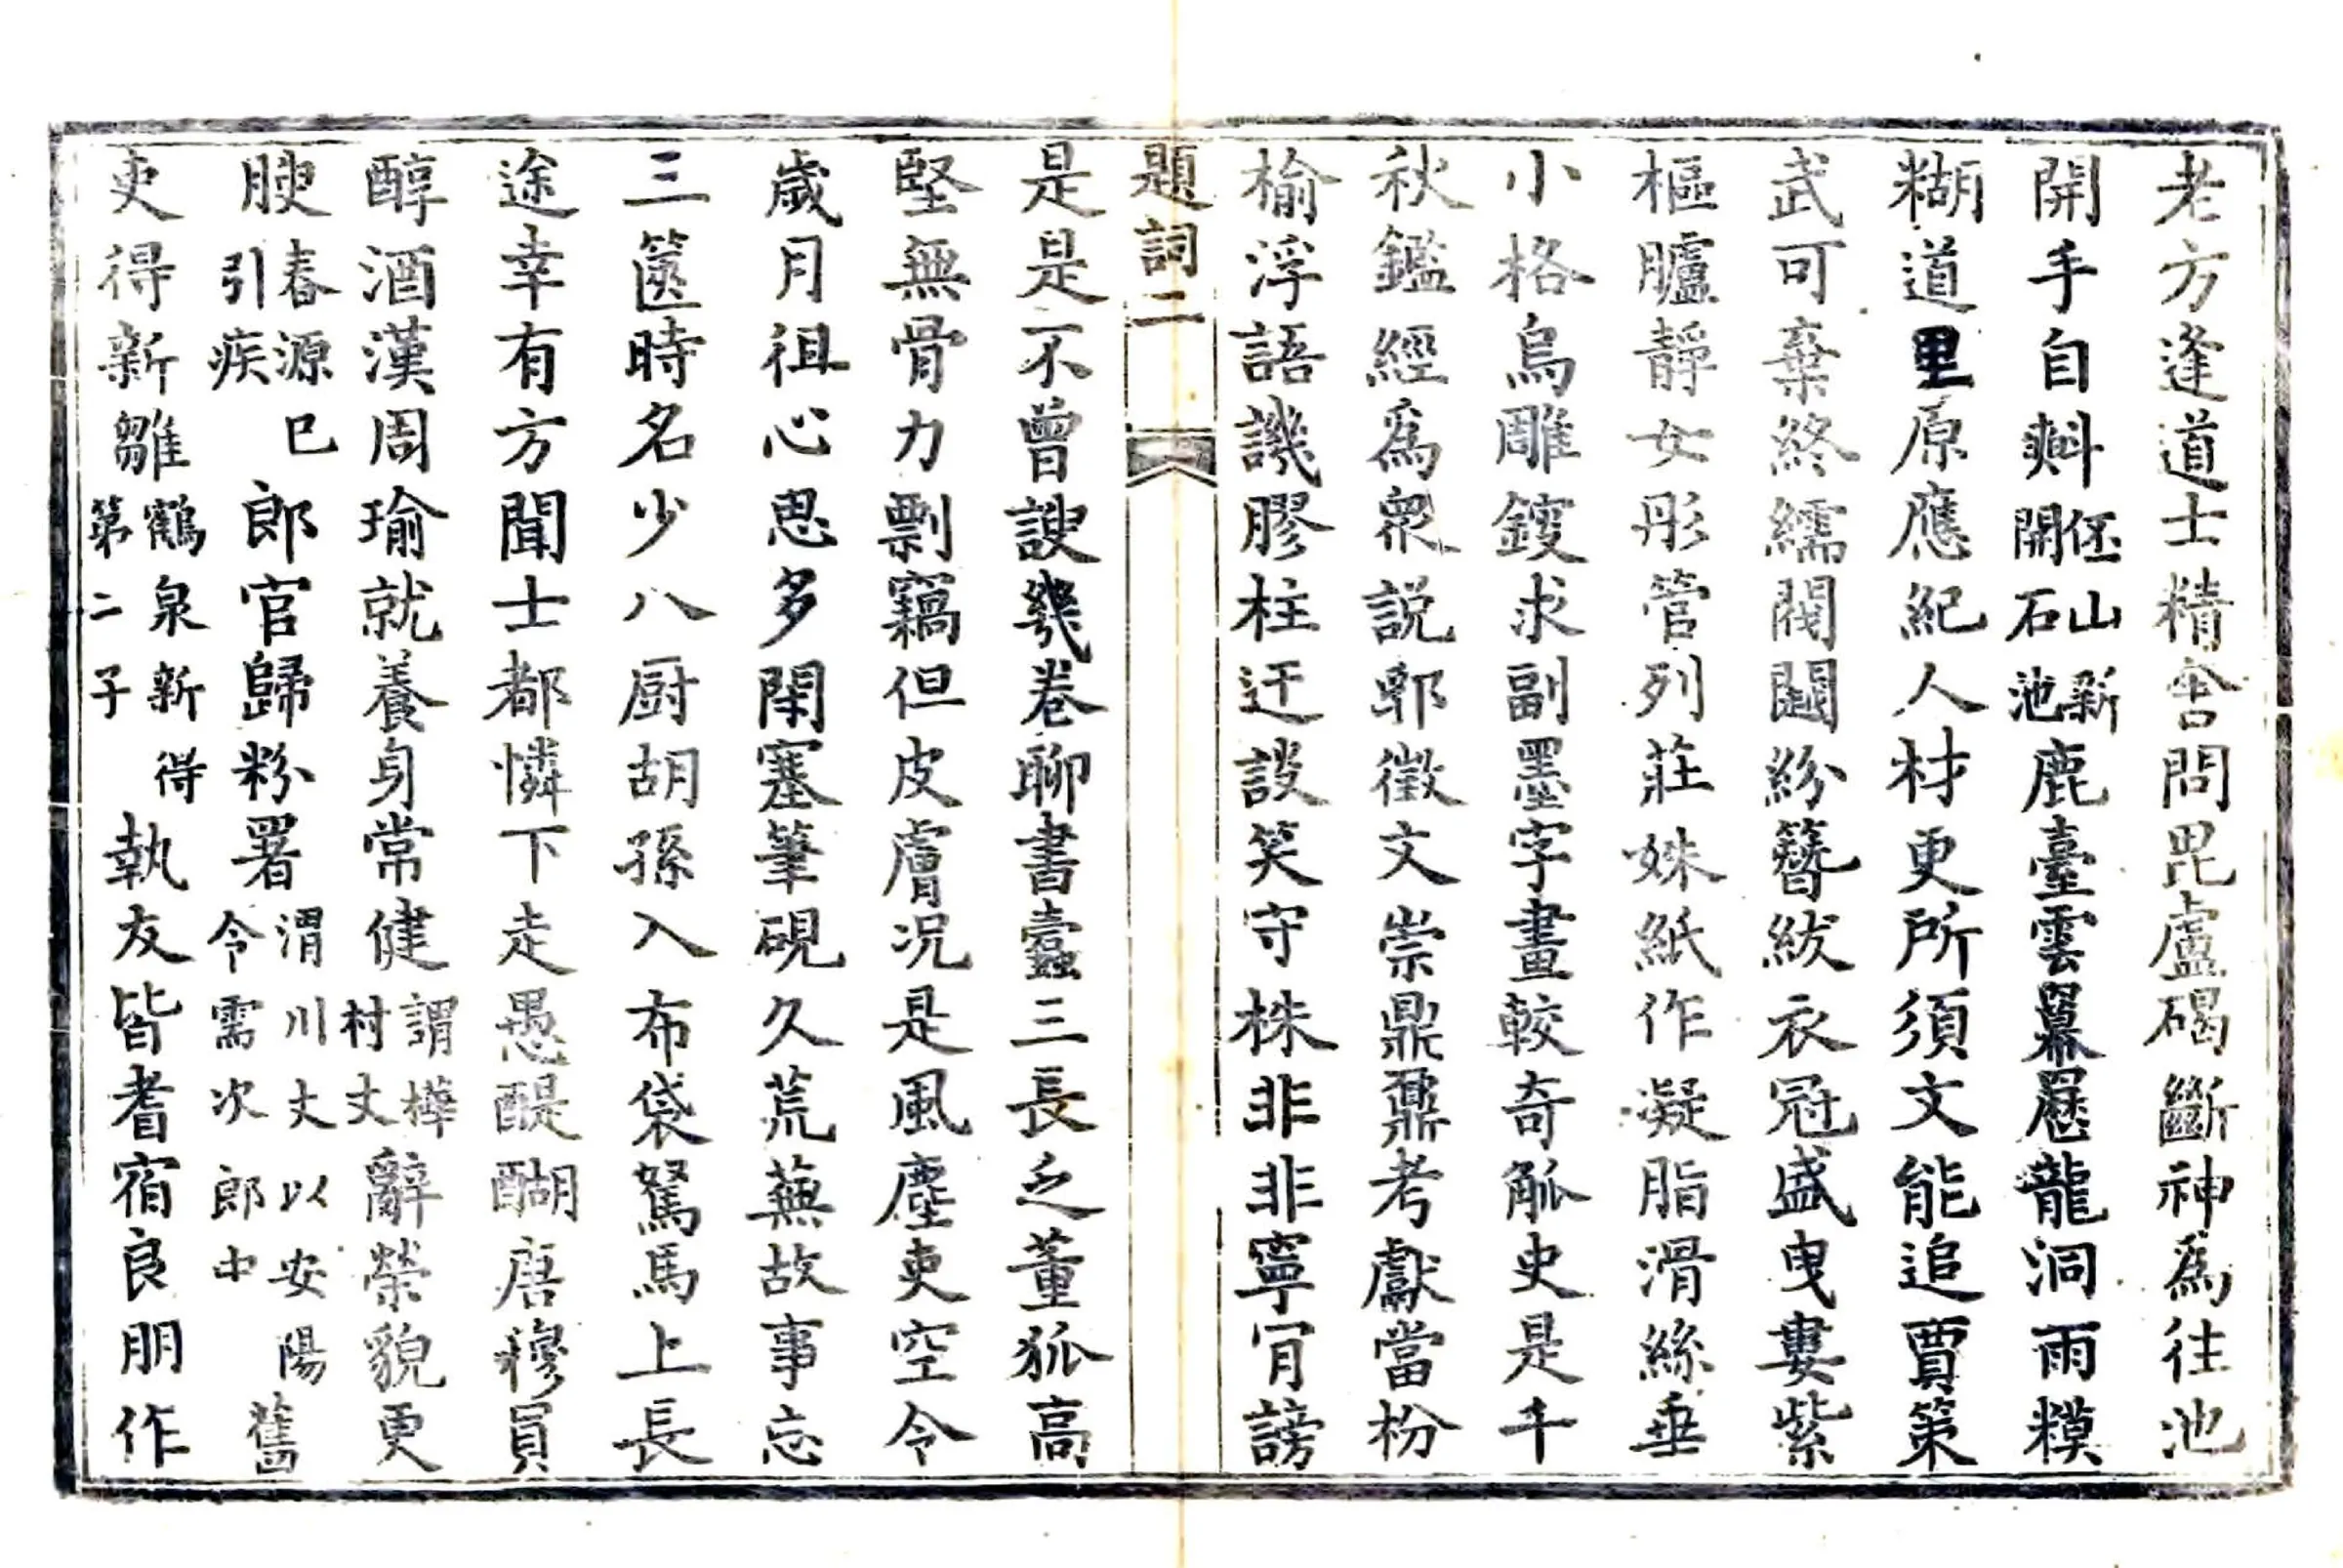 老方逢道士精舍問毘盧碣斷神爲往池
開手自㪺伾山新開石池鹿臺雲羃䍥龍洞雨糢
糊道里原應紀人材更所須文能追賈策
武可棄終繻閥閱紛簪紱衣冠盛曳婁紫
樞臚靜女彤管列莊姝紙作凝脂滑絲垂
小格烏雕鎪求副墨字畫較奇觚史是千
秋鑑經爲衆說郛徵文崇鼎鼐考獻當枌
榆浮語譏膠柱迂談笑守株非非寧冐謗
題詞二
是是不曾諛幾卷聊書蠹三長乏董狐高
堅無骨力剽竊但皮膚况是風塵吏空令
歲月徂心思多閑塞筆硯久荒蕪故事忘
三篋時名少八厨胡孫入布袋駑馬上長
途幸有方聞士都憐下走愚醍醐唐穆員
醇酒漢周瑜就養身常健謂樺村丈辭榮貌更
腴春源巳引疾郎官歸粉署渭川丈以安陽令需次郎中舊
吏得新雛鶴泉新得第二子執友皆耆宿良朋作